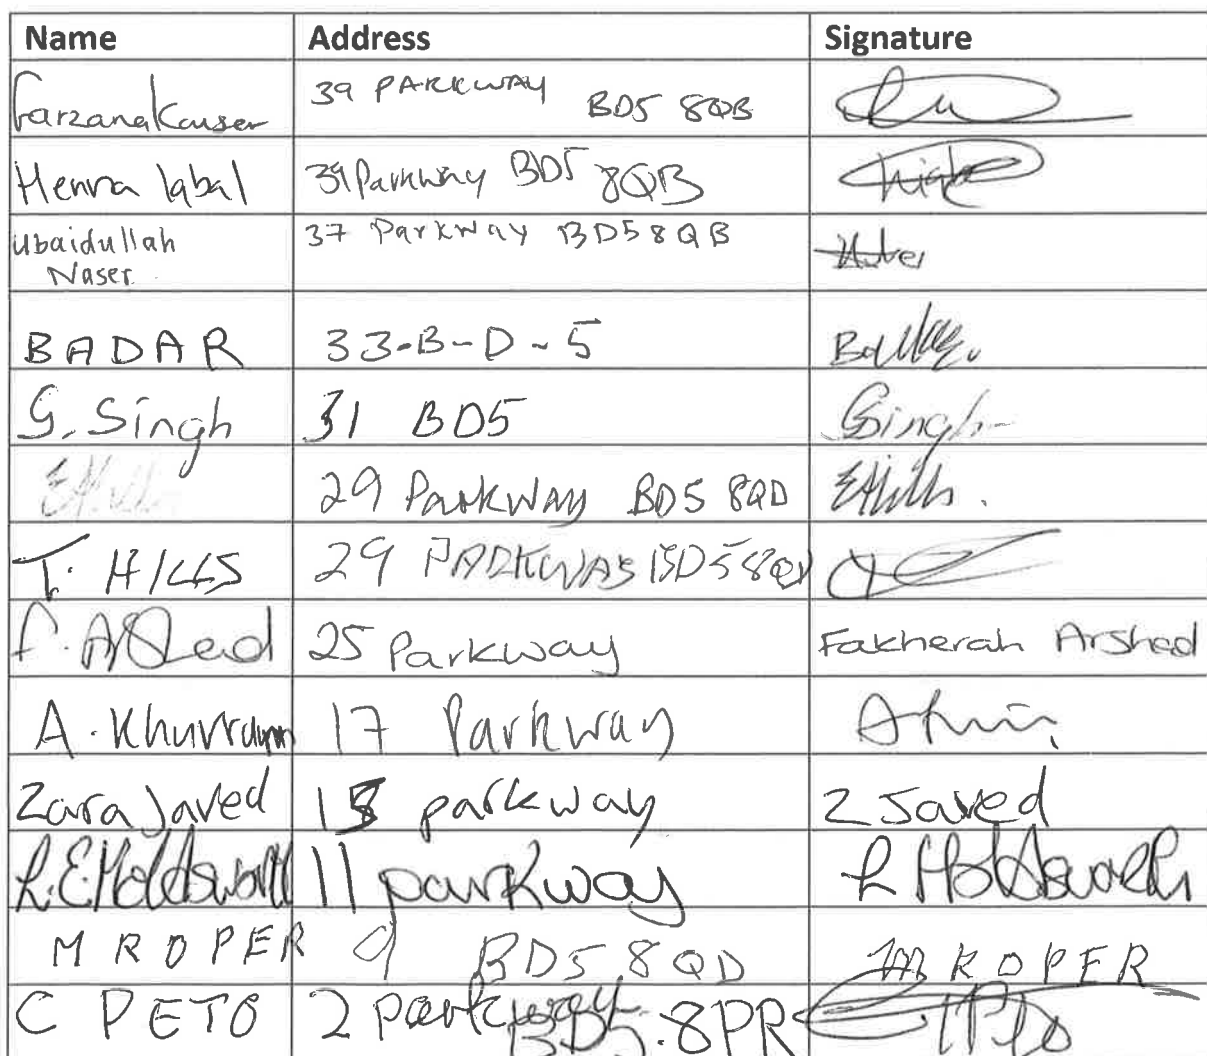 Name Address Signature
Farzana Kauser 39 PARKWAY BD5 8QB
Henna Iqbal 39 Parkway BD5 8QB
Ubaidullah Naser 37 Parkway BD5 8QB
BADAR 33-B-D-5
G. Singh 31 BD5 GSingh
29 Parkway BD5 8QD EHills.
T. HILLS 29 PARKWAY BD5 8QD
F. Arshad 25 Parkway Fakherah Arshad
A. Khurram 17 Parkway
Zara Javed parkway Z Javed
L.E Holdsworth 11 parkway L Holdsworth
M ROPER 9 BD5 8QD M ROPER
C PETO 2 parkway BD5.8PR